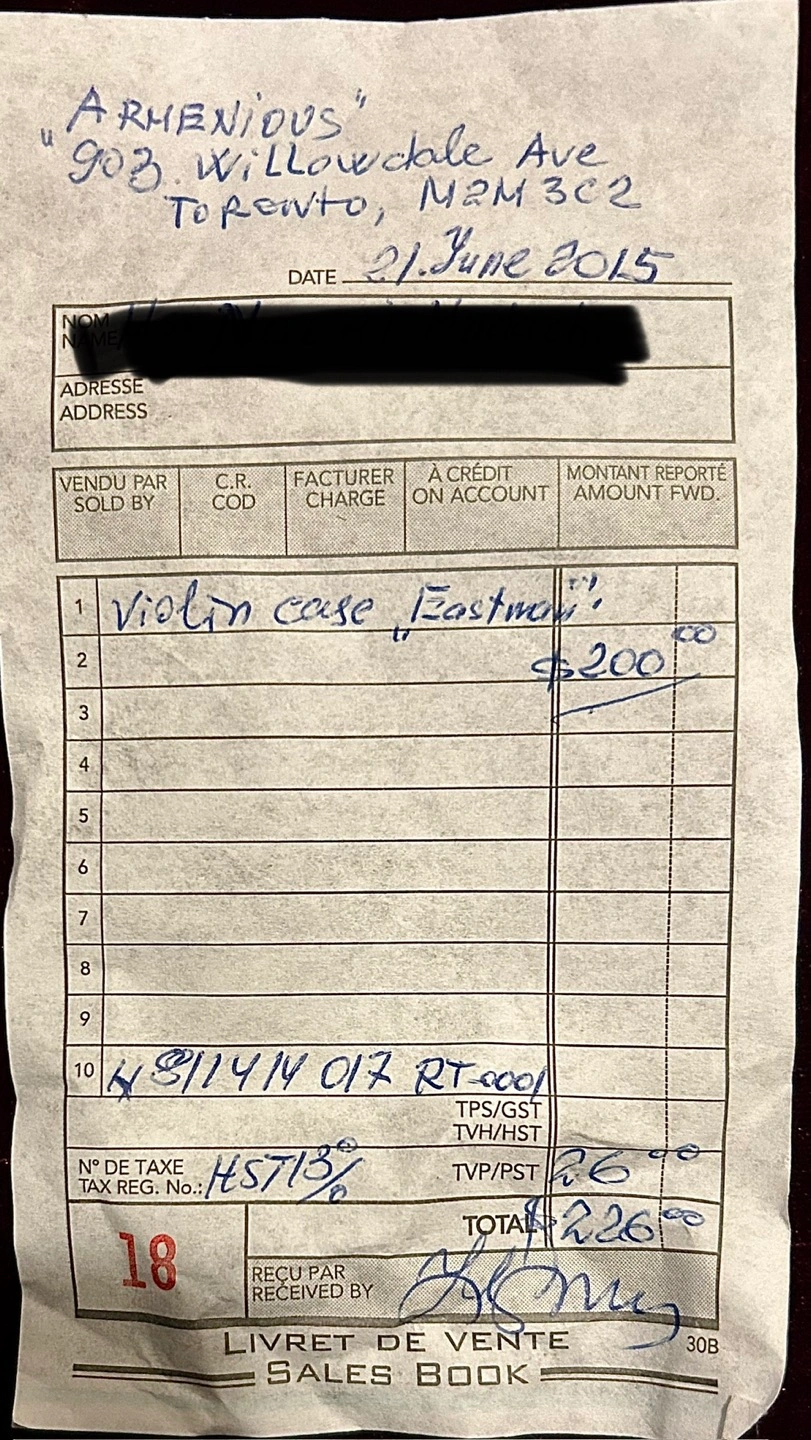 "ARMENIOUS"
903. Willowdale Ave
TORONTO, M2M 3C2
DATE 21. June 2015
NOM
NAME
ADRESSE
ADDRESS
VENDU PAR SOLD BY C.R. COD FACTURER CHARGE À CRÉDIT ON ACCOUNT MONTANT REPORTÉ AMOUNT FWD.
1 Violin case "Eastman"
2 $200 00
3
4
5
6
7
8
9
10 811414 017 RT-0001
TPS/GST
TVH/HST
N° DE TAXE
TAX REG. No.: HST13% TVP/PST 26 00
18 TOTAL $226 00
REÇU PAR
RECEIVED BY
LIVRET DE VENTE 30B
SALES BOOK